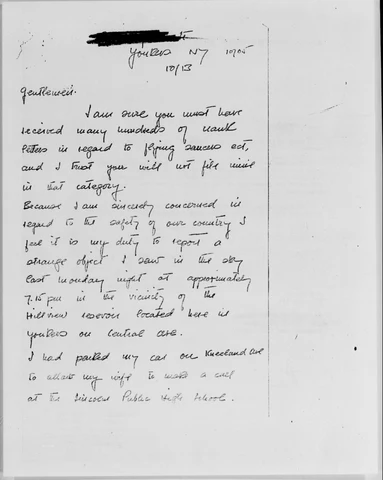 Yonkers NY 10705
10/13
Gentlemen:
I am sure you must have
received many hundreds of crank
letters in regard to flying saucers ect,
and I trust you will not file mine
in that category.
Because I am sincerely concerned in
regard to the safety of our country I
feel it is my duty to report a
strange object I saw in the sky
last monday night at approximately
7:15 pm in the vicinity of the
Hillview reservoir located here in
yonkers on central ave.
I had parked my car on Kneeland Ave
to allow my wife to make a call
at the Lincoln Public High School.